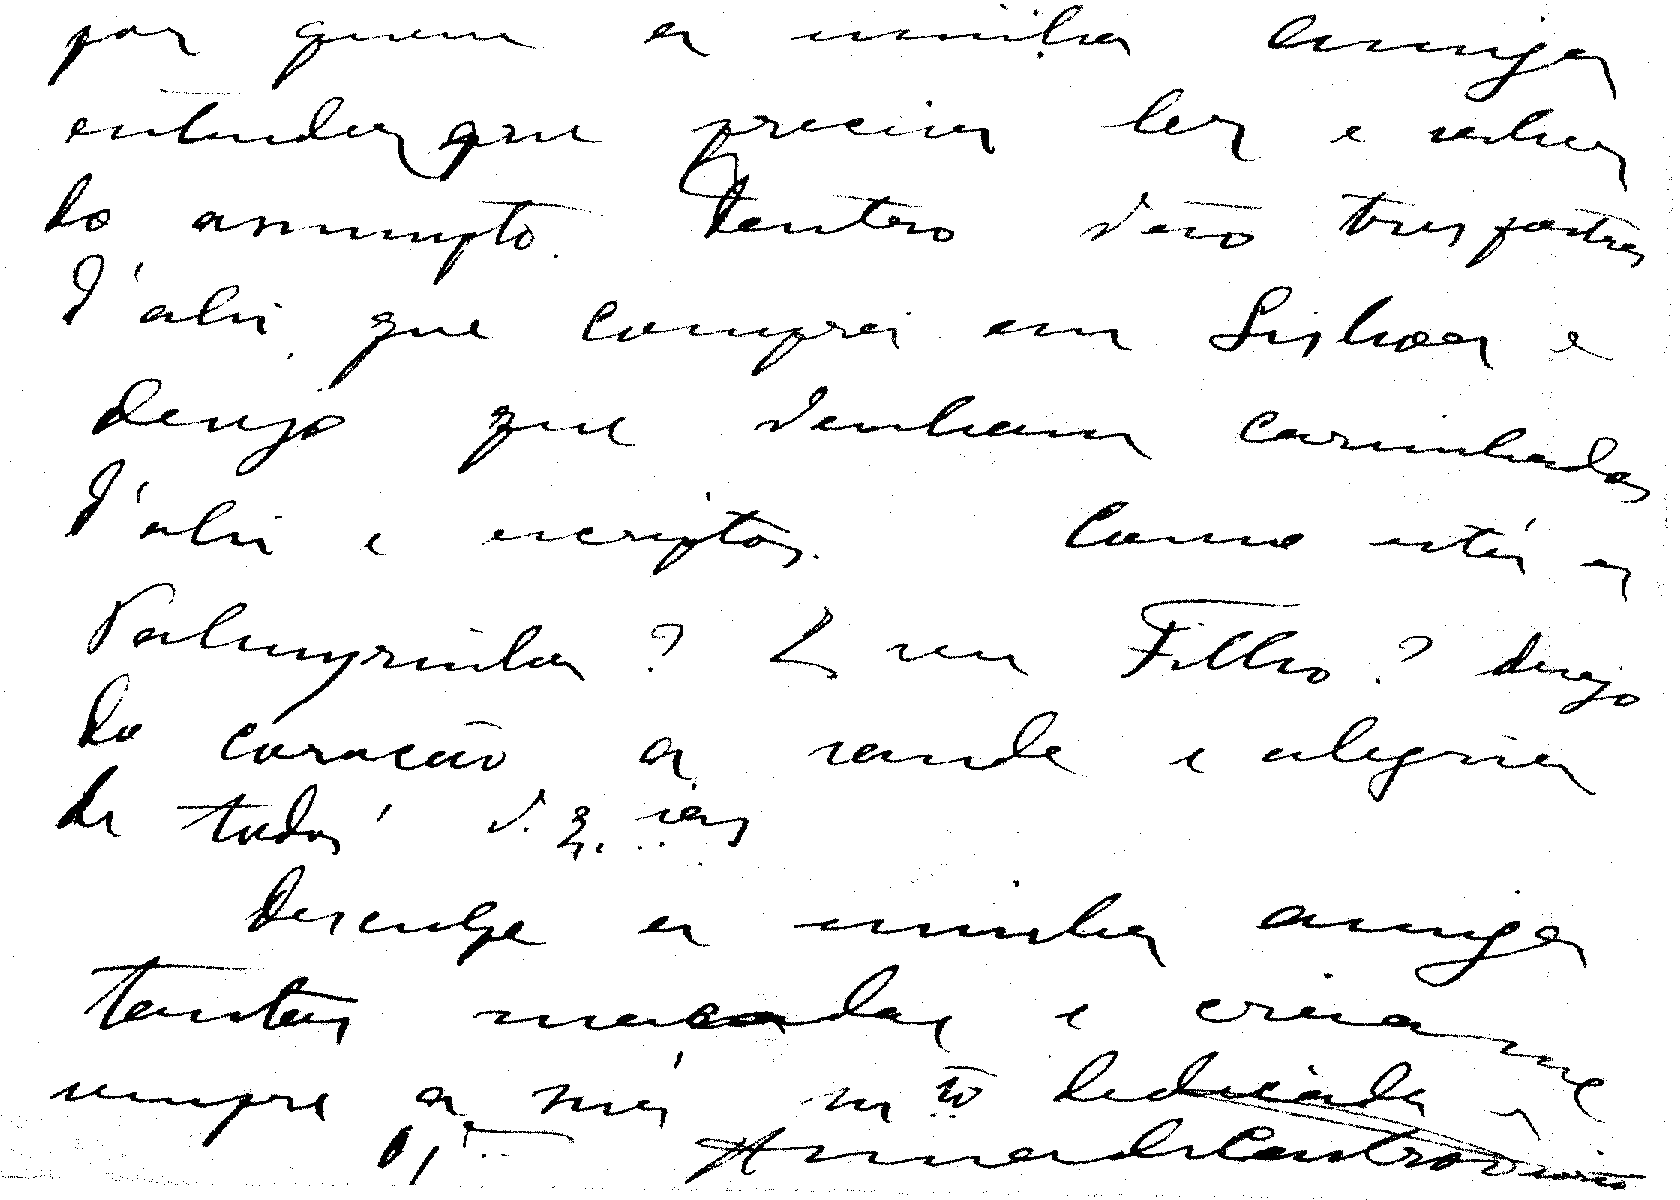 por quem a minha amiga
entender que precisa ler e saber
do assumpto. Dentro vão tres postaes
d'ahi que comprei em Lisboa e
desejo que venham carimbados
d'ahi e escriptos. Como está a
Palmyrinha? E seu Filho? desejo
do coração a saude e alegria
de todos
Desculpe a minha amiga
tantas massadas e creia-me
sempre a sua mto dedicada
Anna de Castro Osorio